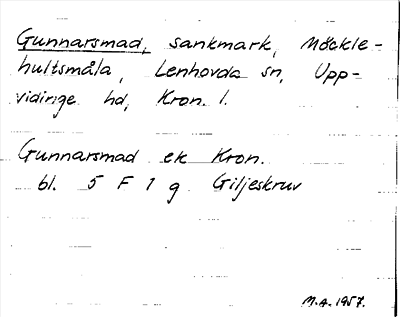 Gunnarsmad, sankmark, Möckle-
hultsmåla, Lenhovda sn, Upp-
vidinge hd, Kron. l.
Gunnarsmad ek Kron.
bl. 5 F 1 g Giljeskruv
M.A. 1957.